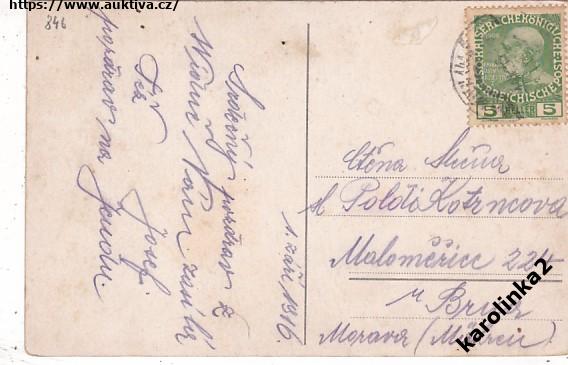 https://www.auktiva.cz/
846
Srdečný pozdrav z
Vídně Vám zasílá
Josef
Též
pozdrav na
1. září 1916.
KAISERLICHE KÖNIGLICHE
ÖSTERREICHISCHE POST
5 HELLER 5
Ctěna Slečna
Poldi Kotrncova
Maloměřice 224
u Brna
Morava (Mähren)
karolinka2